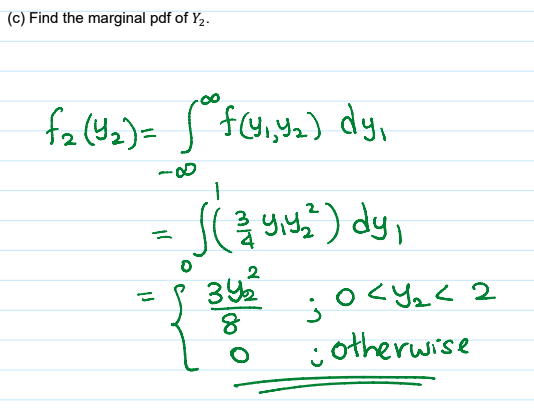 (c) Find the marginal pdf of Y₂.
f₂(y₂) = ∫_{-∞}^{∞} f(y₁,y₂) dy₁
= ∫_0^1 (3/4 y₁y₂²) dy₁
= { 3y₂²/8 ; 0 < y₂ < 2
0 ; otherwise